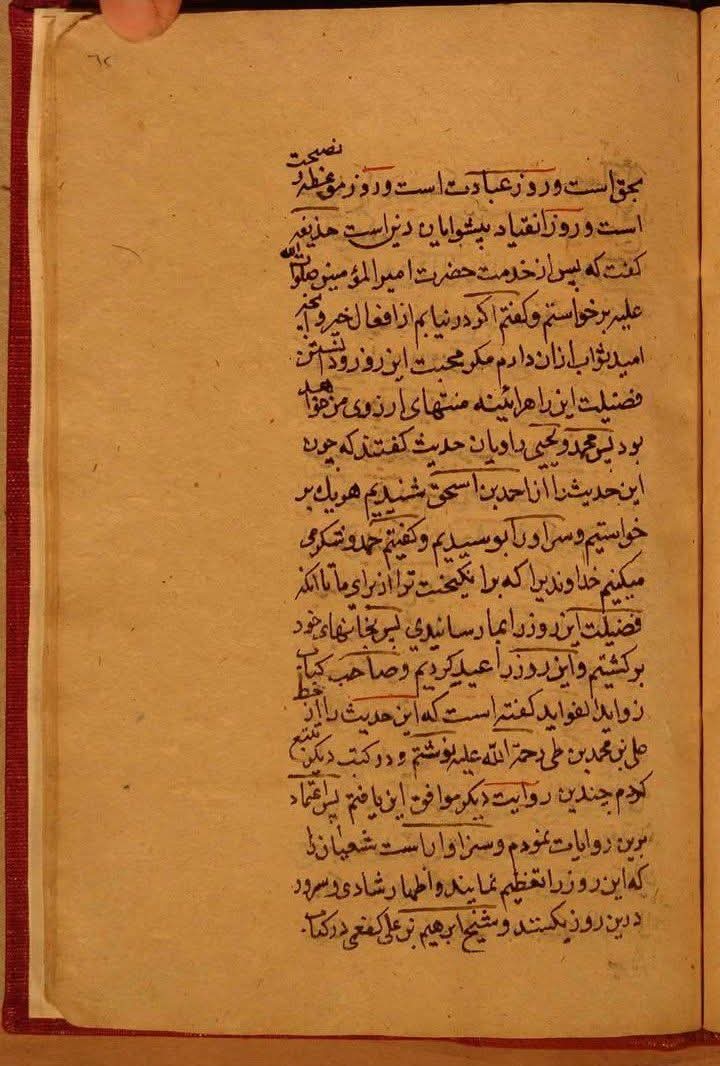 ٦٢
بحق است و روز عبادت است و روز موعظه و نصیحت
است و روز انقیاد پیشوایان دین است حذیفه
کفت که پس از خدمت حضرت امیر المؤمنین صلوات الله
علیه برخواستم و کفتم اکر در نیابم از افعال خیر و آنچه
امید ثواب ازان دارم مکر محبت این روز و دانستن
فضیلت این را هرائینه منتهای ارزوی من خواهد
بود پس محمد و یحیی راویان حدیث کفتند که چون
این حدیث را از احمد بن اسحق شنیدیم هر یك بر
خواستیم و سر او را بوسیدیم و کفتیم حمد و شکر می
میکنیم خداوندیرا که برانکیخت ترا از برای ما تا انکه
فضیلت این روز را بما رسانیدی پس بخانهای خود
برکشتیم و این روز را عید کردیم و صاحب کتاب
زواید الفواید کفته است که این حدیث را از خط
علی بن محمد بن طی رحمة الله علیه نوشتم و در کتب دیکر تتبع
کردم چندین روایت دیکر موافق این یافتم پس اعتماد
برین روایات نمودم و سزاوار است شعیان را
که این روز را تعظیم نمایند و اظهار شادی و سرور
درین روز بکنند و شیخ ابرهیم بن علی کفعمی در کتاب